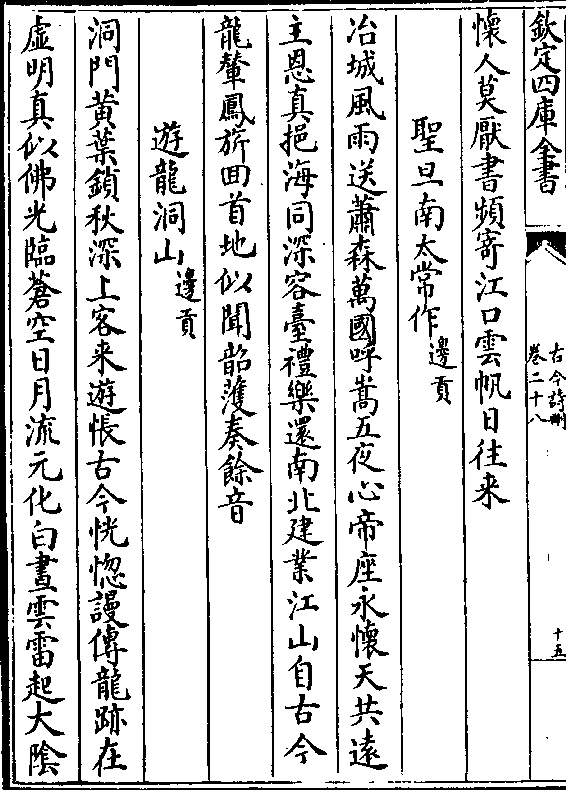 欽定四庫全書
古今詩刪
卷二十八
十五
懷人莫厭書頻寄江口雲帆日往来
聖旦南太常作邊貢
冶城風雨送蕭森萬國呼嵩五夜心帝座永懷天共遠
主恩真挹海同深容臺禮樂還南北建業江山自古今
龍輦鳳旂回首地似聞韶頀奏餘音
遊龍洞山邊貢
洞門黄葉鎖秋深上客来遊悵古今恍惚謾傳龍跡在
虚明真似佛光臨蒼空日月流元化白晝雲雷起大陰